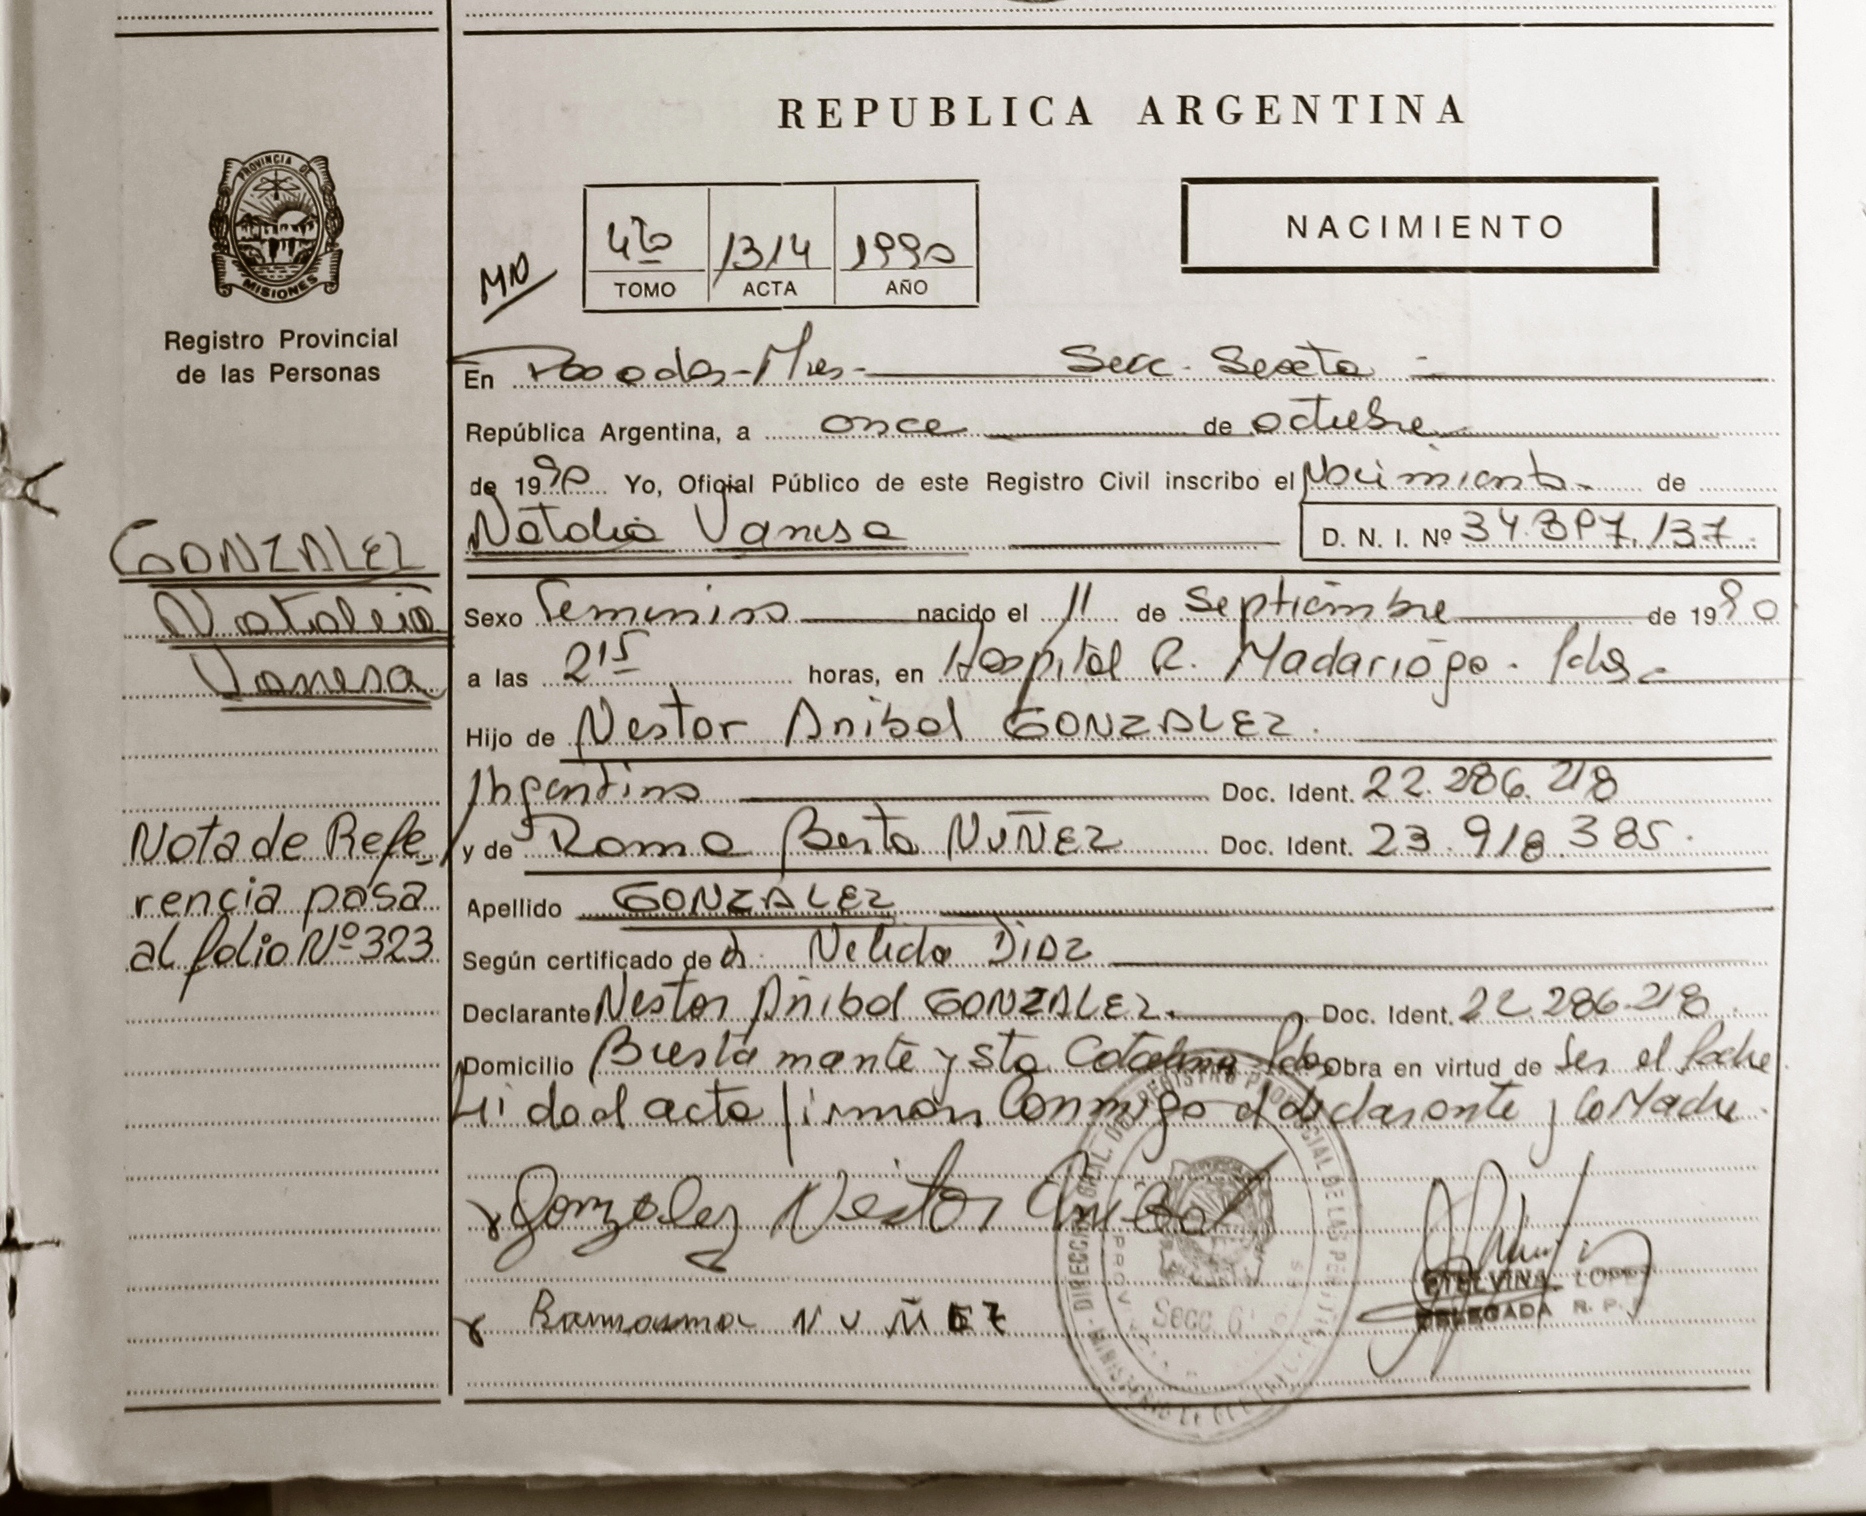 REPUBLICA ARGENTINA
PROVINCIA DE
MISIONES
Registro Provincial
de las Personas
4to 1314 1990
TOMO ACTA AÑO
NACIMIENTO
En Posadas-Mnes- Secc. Sexta
República Argentina, a once de octubre
de 1990 Yo, Oficial Público de este Registro Civil inscribo el Nacimiento de
Natalia Vanesa D. N. I. Nº 34.397.137
GONZALEZ
Natalia
Vanesa
Sexo Femenino nacido el 11 de Septiembre de 1990
a las 2 15 horas, en Hospital R. Madariaga. Pdas
Hijo de Nestor Anibal GONZALEZ.
Argentino Doc. Ident. 22.286.218
y de Ramona Berta NUÑEZ Doc. Ident. 23.918.385.
Nota de Refe-
rencia pasa
al folio Nº 323
Apellido GONZALEZ
Según certificado de Nelida DIAZ
Declarante Nestor Anibal GONZALEZ. Doc. Ident. 22.286.218.
Domicilio Bustamante y Sta Catalina Pdas Obra en virtud de Ser el Padre
Leida el acta firman Conmigo el declarante y la Madre.
Gonzalez Nestor Anibal
NUÑEZ
ETELVINA LOPEZ
DELEGADA R. P. P.
DIRECC. GRAL. DEL REGISTRO PROVINCIAL DE LAS PERSONAS
Secc. 6